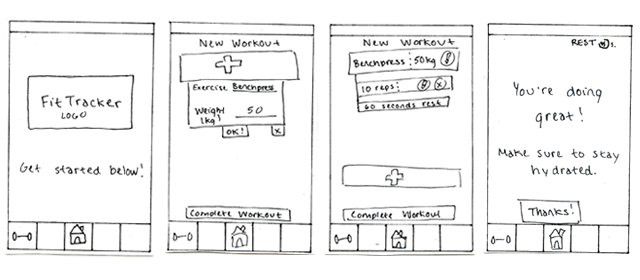 FitTracker
LOGO
Get started below!
New Workout
Exercise Benchpress
Weight 50
(kg)
OK! x
Complete Workout
New Workout
Benchpress: 50kg
10 reps: x
60 seconds rest
Complete Workout
REST
s.
You're doing
great!
Make sure to stay
hydrated.
Thanks!